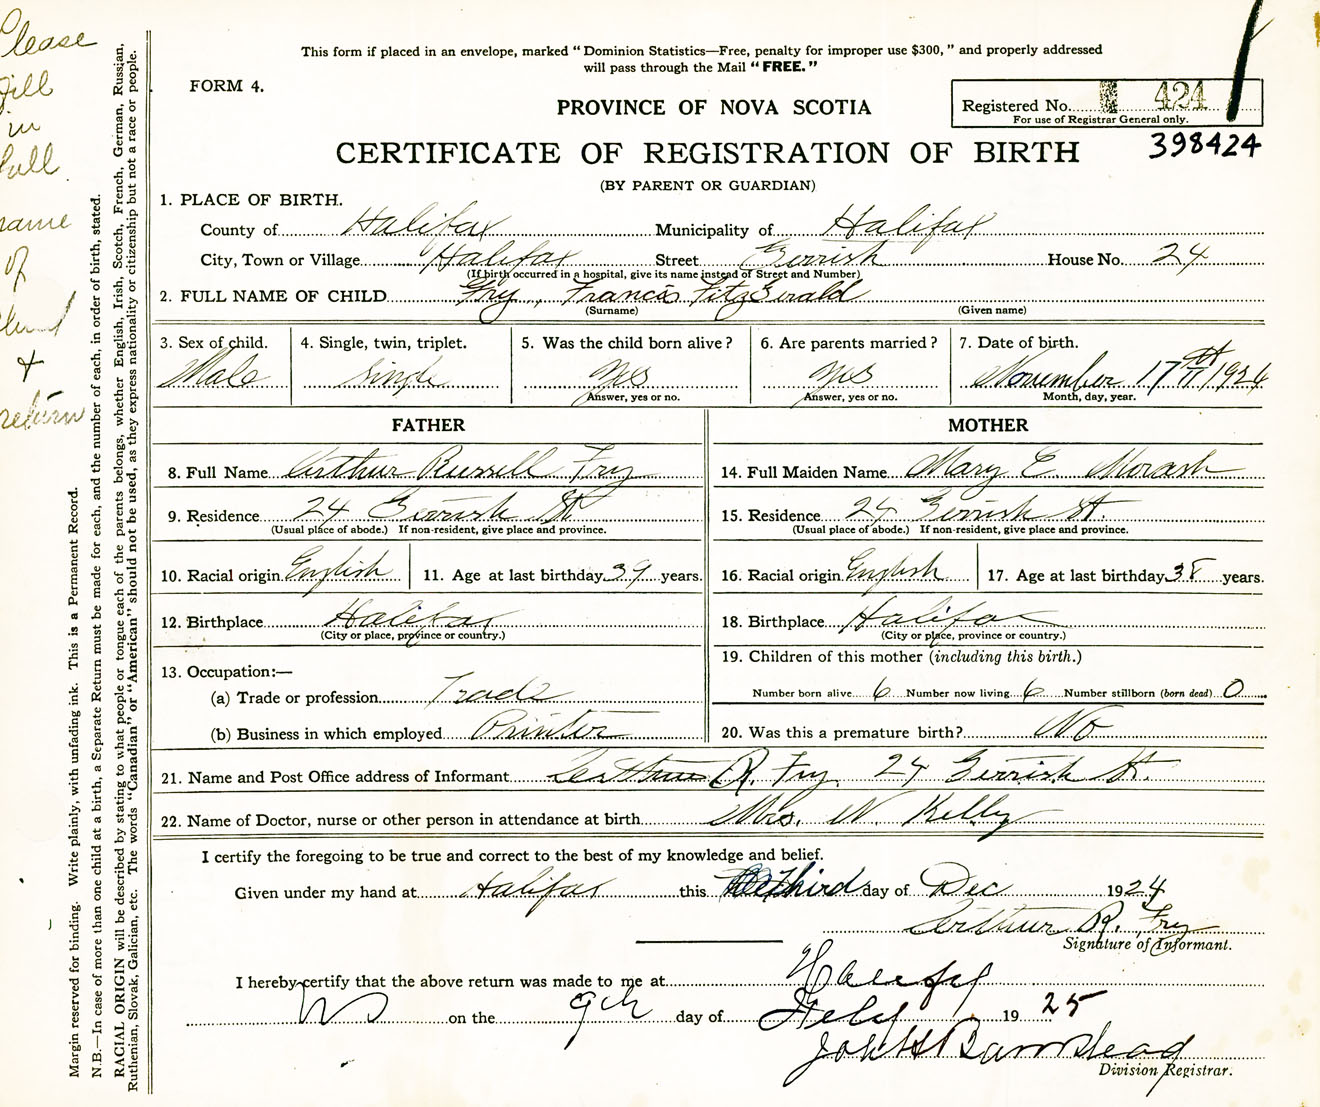 Please
fill
in
full
name
of
child
&
return
Margin reserved for binding. Write plainly, with unfading ink. This is a Permanent Record.
N.B.—In case of more than one child at a birth, a Separate Return must be made for each, and the number of each, in order of birth, stated.
RACIAL ORIGIN will be described by stating to what people or tongue each of the parents belongs, whether English, Irish, Scotch, French, German, Russian,
Ruthenian, Slovak, Galician, etc. The words "Canadian" or "American" should not be used, as they express nationality or citizenship but not a race or people.
This form if placed in an envelope, marked "Dominion Statistics—Free, penalty for improper use $300," and properly addressed
will pass through the Mail "FREE."
FORM 4.
PROVINCE OF NOVA SCOTIA
Registered No. 424
For use of Registrar General only.
CERTIFICATE OF REGISTRATION OF BIRTH
398424
(BY PARENT OR GUARDIAN)
1. PLACE OF BIRTH.
County of Halifax Municipality of Halifax
City, Town or Village Halifax Street Gerrish House No. 24
(If birth occurred in a hospital, give its name instead of Street and Number)
2. FULL NAME OF CHILD Fry, Francis FitzGerald
(Surname) (Given name)
3. Sex of child. 4. Single, twin, triplet. 5. Was the child born alive? 6. Are parents married? 7. Date of birth.
Male Single Yes Yes November 17th 1924
Answer, yes or no. Answer, yes or no. Month, day, year.
FATHER MOTHER
8. Full Name Arthur Russell Fry 14. Full Maiden Name Mary E. Morash
9. Residence 24 Gerrish St 15. Residence 24 Gerrish St.
(Usual place of abode.) If non-resident, give place and province. (Usual place of abode.) If non-resident, give place and province.
10. Racial origin English 11. Age at last birthday 39 years. 16. Racial origin English 17. Age at last birthday 38 years.
12. Birthplace Halifax 18. Birthplace Halifax
(City or place, province or country.) (City or place, province or country.)
13. Occupation:— 19. Children of this mother (including this birth.)
(a) Trade or profession Trade Number born alive 6 Number now living 6 Number stillborn (born dead) 0
(b) Business in which employed Printer 20. Was this a premature birth? No
21. Name and Post Office address of Informant Arthur R. Fry. 24 Gerrish St.
22. Name of Doctor, nurse or other person in attendance at birth Mrs. W. Kelly
I certify the foregoing to be true and correct to the best of my knowledge and belief.
Given under my hand at Halifax this Third day of Dec 1924
Arthur R. Fry
Signature of Informant.
I hereby certify that the above return was made to me at Halifax
NS on the 9th day of Feby 1925
John H Barnstead
Division Registrar.